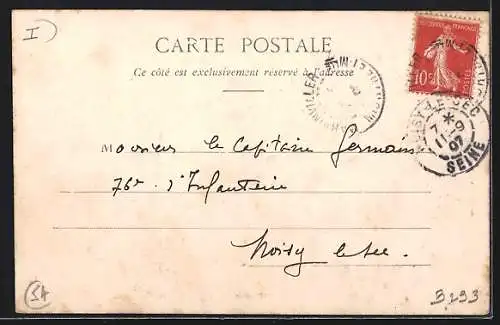 I
CARTE POSTALE
Ce côté est exclusivement réservé à l'adresse
10c
NOISY-LE-SEC
7 *
11 -9
07
SEINE
Monsieur le Capitaine Germain
76e d'Infanterie
Noisy le Sec
5293